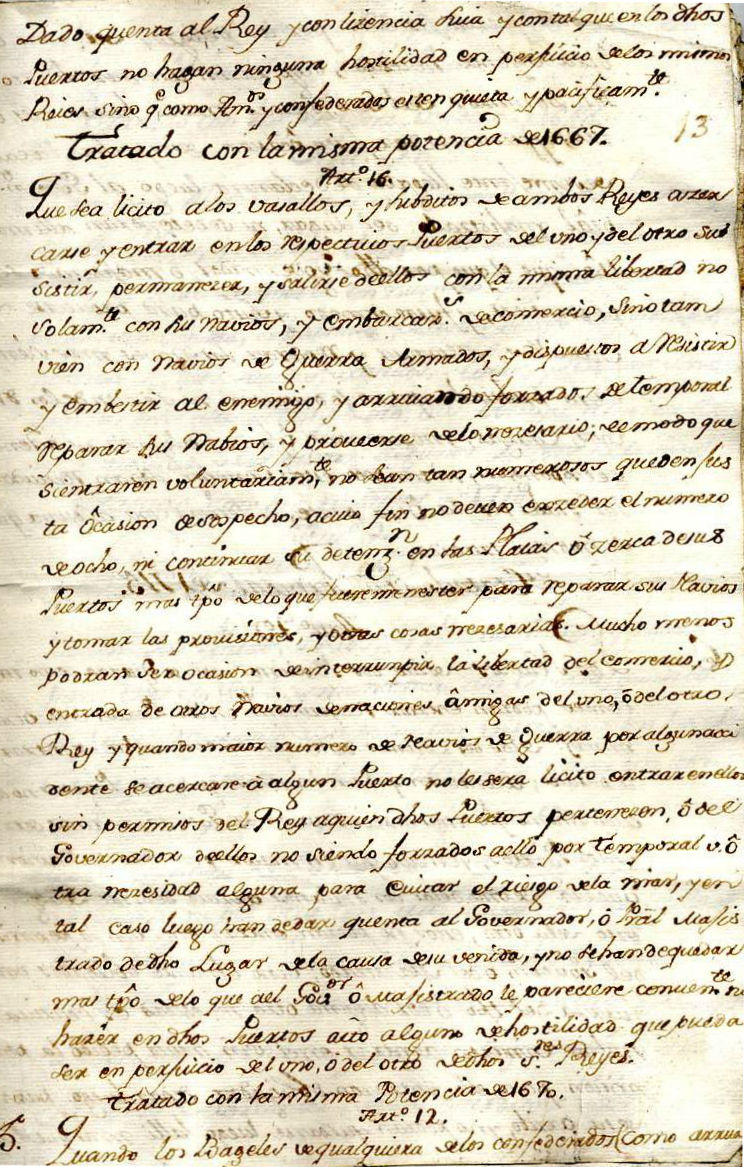 Dado quenta al Rey y con lizencia suia y con tal que en los dhos
Puertos no hagan ninguna hostilidad en perjuicio de los mismos
Reies sino q.e como Am.os y confederados esten quieta y pacificam.te
13
Tratado con la misma potencia de 1667.
Art.o 16.
Que sea licito a los vasallos, y subditos de ambos Reyes azer
carse y entrar en los respectivios Puertos del uno y del otro sub
sistir, permanezer, y salirse de ellos con la misma libertad no
solam.te con sus Navios, y embarcan.s de comercio, sino tam
vien con Navios de Guerra Armados, y dispuestos a resistir
y embestir al enemigo, y arrivando forzados de temporal
reparar sus Nabios, y proveerse de lo nezesario; de modo que
si entraren voluntariam.te no sean tan numerosos que den jus
ta ocasion de sospecho, a cuio fin no deven exzeder el numero
de ocho, ni continuar su detenz.n en las Plaias ô zerca de sus
Puertos mas tpô de lo que fuere menester para reparar sus Navios
y tomar las provisiones, y otras cosas nezesarias. Mucho menos
podran ser ocasion de interrunpir la libertad del comercio, y
entrada de otros Navios de naciones âmigas del uno, ô del otro
Rey y quando maior numero de Navios de Guerra por algun acci
dente se acercare â algun Puerto no les serâ licito entrar en ellos
sin permisos del Rey a quien dhos Puertos pertenezen, ô del
Governador de ellos no siendo forzados a ello por temporal u ô
tra nezesidad alguna para evitar el riesgo de la mar, y en
tal caso luego han de dar quenta al Governador, ô Pral Majis
trado de dho Lugar de la causa de su venida, y no se han de quedar
mas tpô de lo que al Gov.or ô Majistrado le pareciere conven.te ni
hazer en dhos Puertos acto alguno de hostilidad que pueda
ser en perjuicio del uno, ô del otro de dhos S.res Reyes.
Tratado con la misma Potencia de 1670.
Art.o 12.
Quando los Bageles de qualquiera de los confederados (como arriva